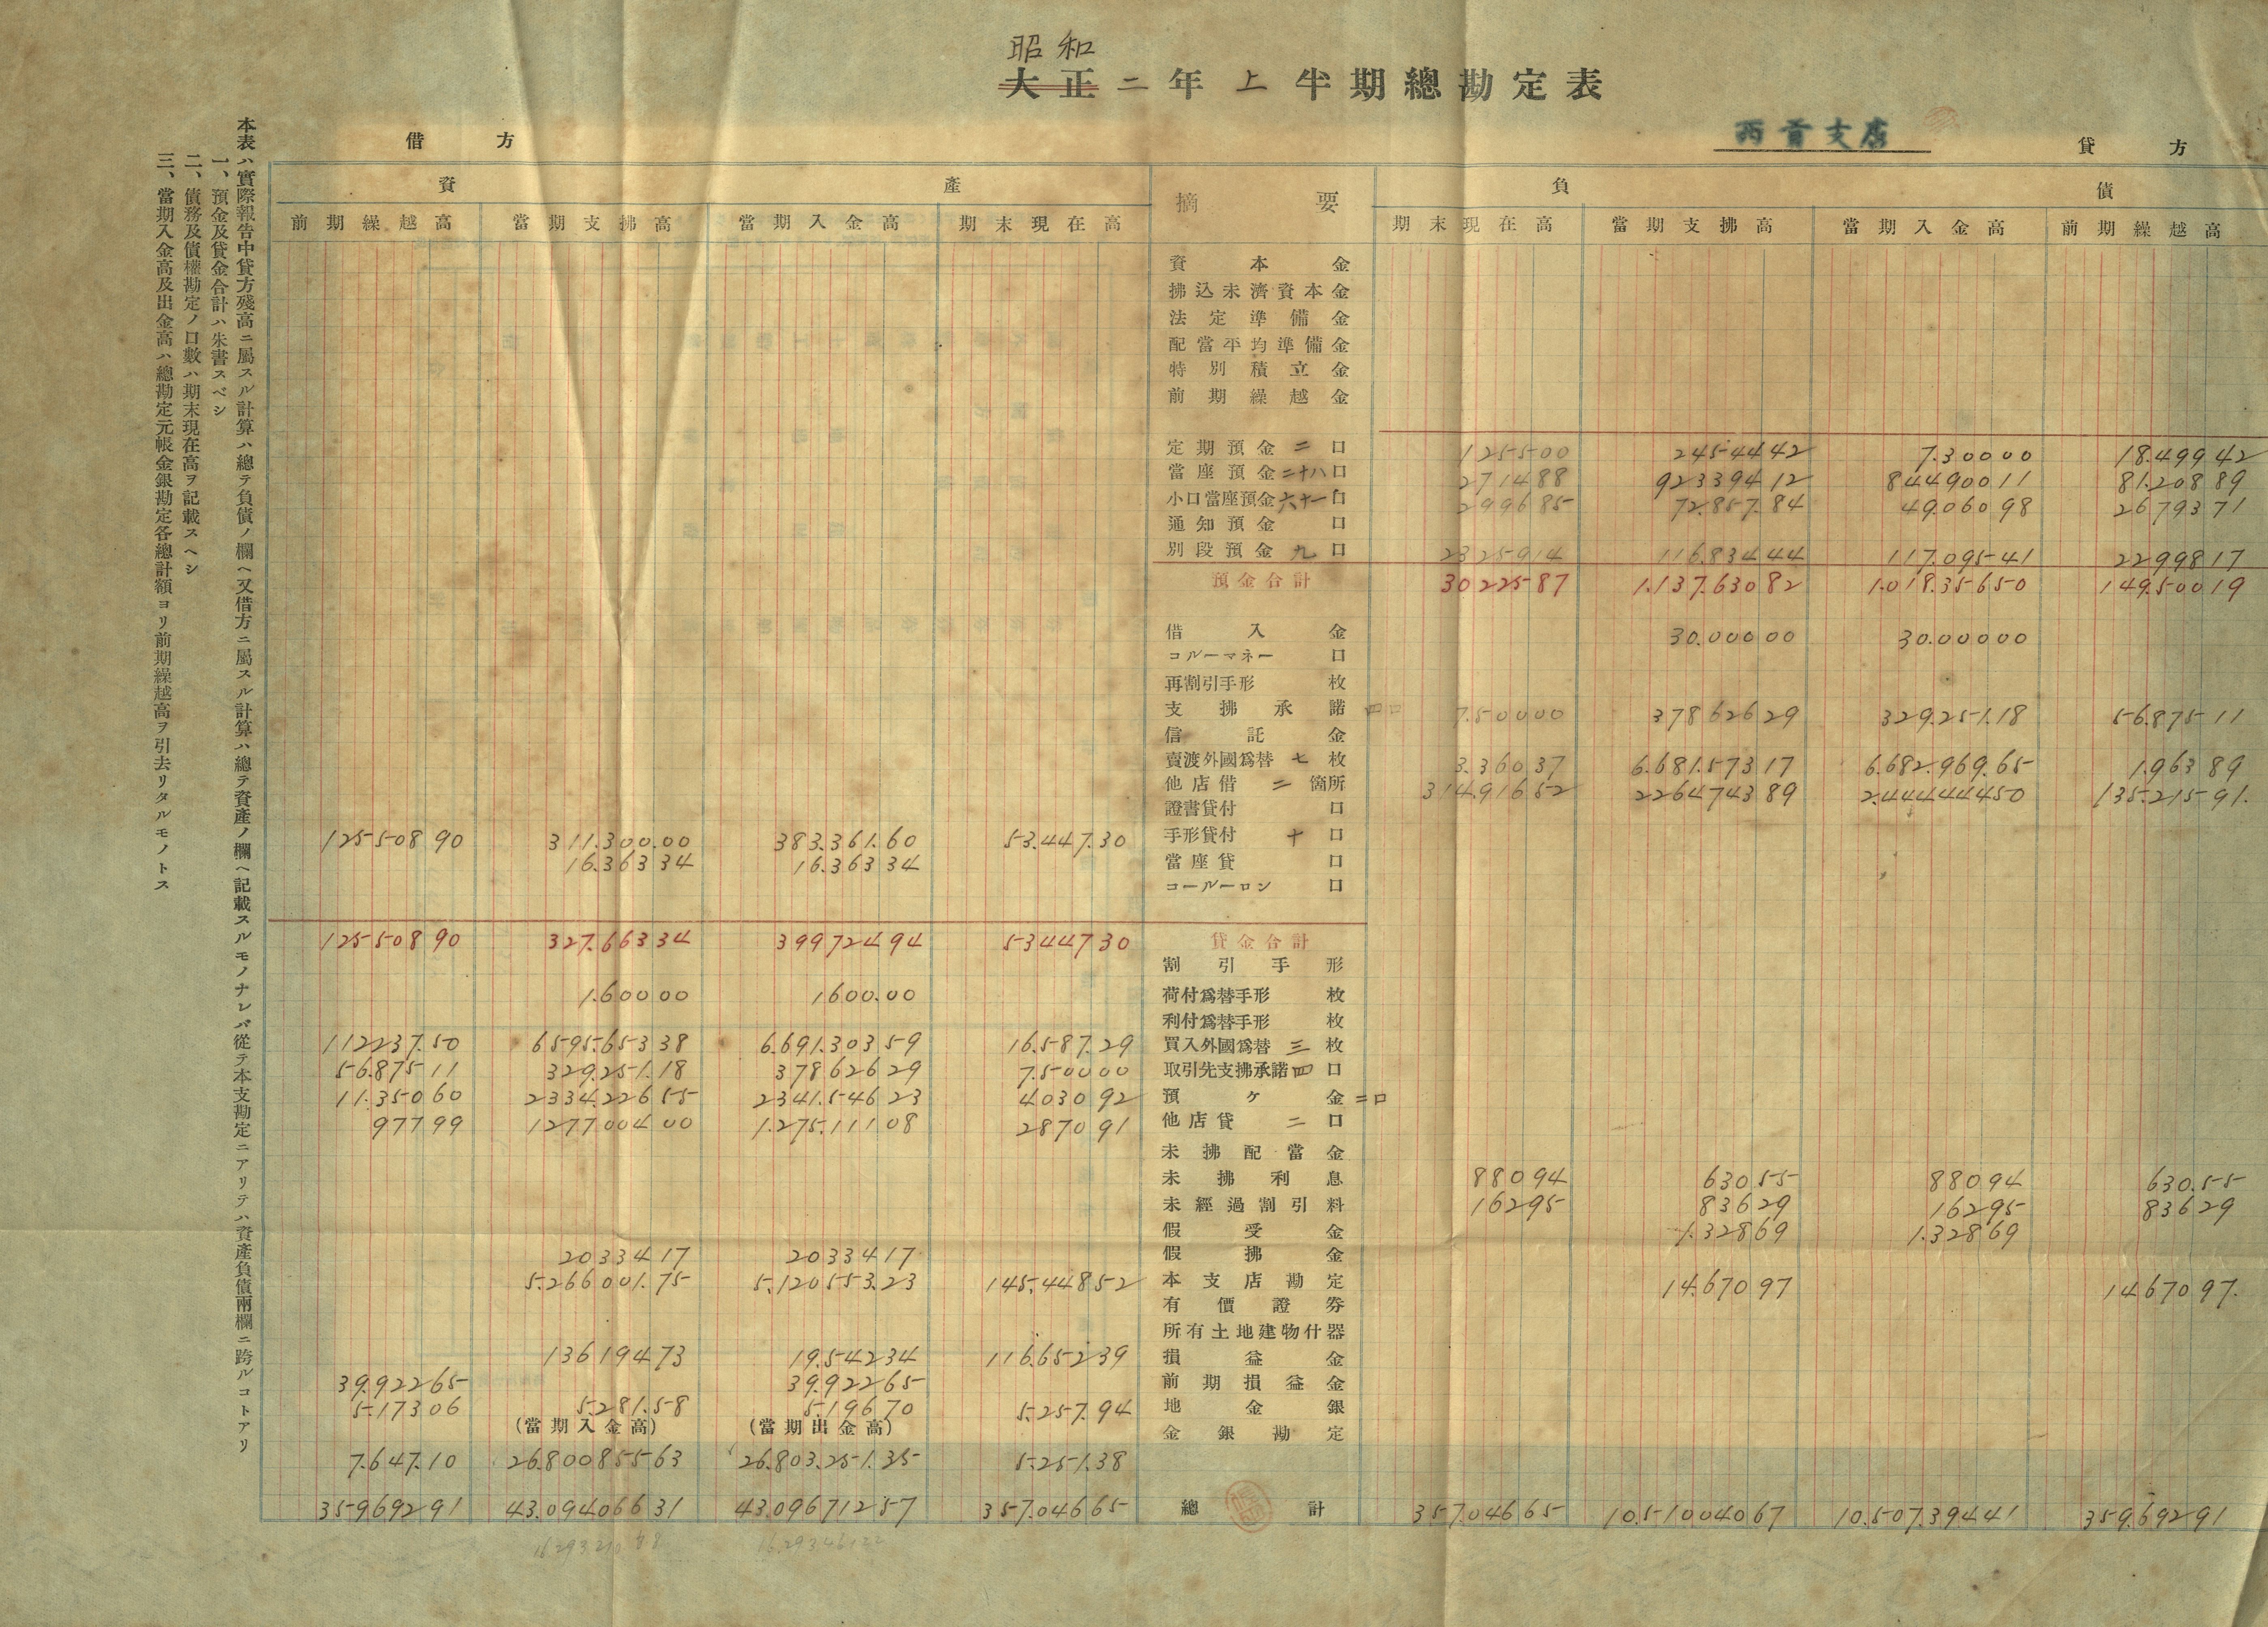 昭和
大正二年上半期總勘定表
西貢支店
借方
貸方
資產
摘要
負債
前期繰越高 當期支拂高 當期入金高 期末現在高 期末現在高 當期支拂高 當期入金高 前期繰越高
資本金
拂込未濟資本金
法定準備金
配當平均準備金
特別積立金
前期繰越金
定期預金 二 口 125500 2454442 7.30000 18.49942
當座預金 二十八 口 271488 92339412 84490011 81.20889
小口當座預金 六十一 口 299685 72.857.84 49.06098 2679371
通知預金 口
別段預金 九 口 2325914 116.83444 117.09541 2299817
預金合計 3022587 1.137.63082 1.018.35650 149.50019
借入金 30.00000 30.00000
コルーマネー 口
再割引手形 枚
支拂承諾 四口 7.50000 37862629 329.251.18 56.87511
信託金
賣渡外國爲替 七 枚 3.36037 6.681.57317 6.682.969.65 1.96389
他店借 二 箇所 314.91652 226474389 2.44444450 135.21591.
證書貸付 口
12550890 311.300.00 383.361.60 53.447.30 手形貸付 十 口
16.36334 16.36334 當座貸 口
コールーロン 口
12550890 327.66334 39972494 5344730 貸金合計
割引手形
1.60000 1600.00 荷付爲替手形 枚
利付爲替手形 枚
112237.50 6595.65338 6.691.30359 16.587.29 買入外國爲替 三 枚
56.87511 329.251.18 37862629 7.50000 取引先支拂承諾 四 口
11.35060 2334.22655 2341.54623 403092 預ケ金 二口
97799 127700400 1.275.11108 287091 他店貸 二 口
未拂配當金
未拂利息 88094 63055 88094 630.55
未經過割引料 16295 83629 16295 83629
假受金 1.32869 1.32869
2033417 2033417 假拂金
5.266001.75 5.12055323 145.44852 本支店勘定 14.67097 1467097.
有價證券
所有土地建物什器
13619473 19.54234 116.65239 損益金
39.92265 39.92265 前期損益金
5.17306 5.281.58 5.19670 5.257.94 地金銀
(當期入金高) (當期出金高)
金銀勘定
7.647.10 26.80085563 26.803.251.35 5.251.38
359.69291 43.09406631 43.09671257 357.04665 總計 357.04665 10.51004067 10.507.39441 359.69291
本表ハ實際報告中貸方殘高ニ屬スル計算ハ總テ負債ノ欄ヘ又借方ニ屬スル計算ハ總テ資產ノ欄ヘ記載スルモノナレバ從テ本支勘定ニアリテハ資產負債兩欄ニ跨ルコトアリ
一、預金及貸金合計ハ朱書スベシ
二、債務及債權勘定ノ口數ハ期末現在高ヲ記載スヘシ
三、當期入金高及出金高ハ總勘定元帳金銀勘定各總計額ヨリ前期繰越高ヲ引去リタルモノトス